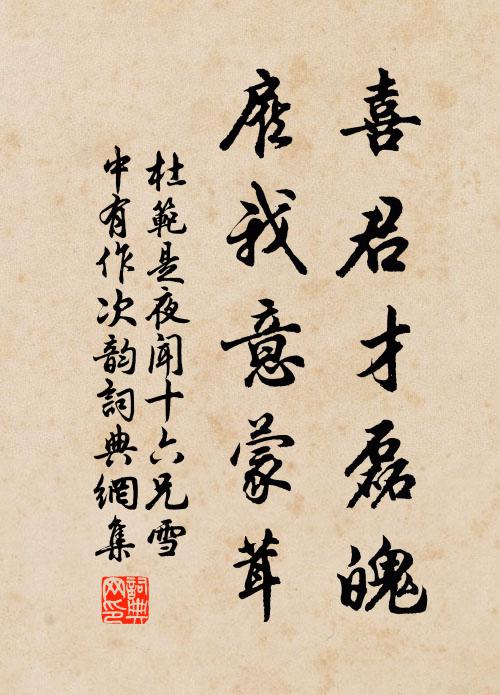 喜君才磊魄
我意蒙茸
杜範是夜聞十六兄雪
中有作次韵詞典網集
詞典網印